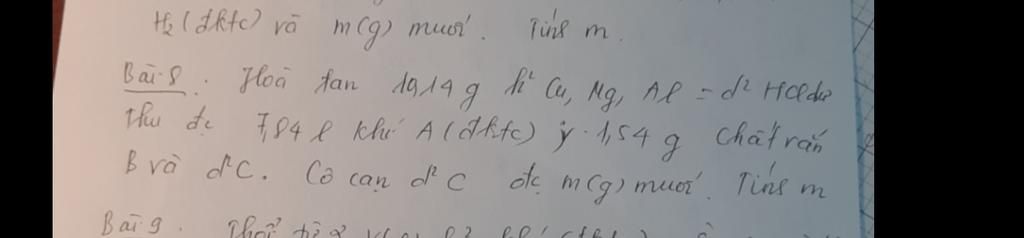 H₂ (đktc) và m(g) muối. Tính m.
Bài 8. Hoà tan 10,14 g h² Cu, Mg, Al = d² HCl dư
thu đc 7,84 l khí A (đktc) và 1,54 g chất rắn
B và d² C. Cô cạn d² C đc m(g) muối. Tính m
Bài 9.